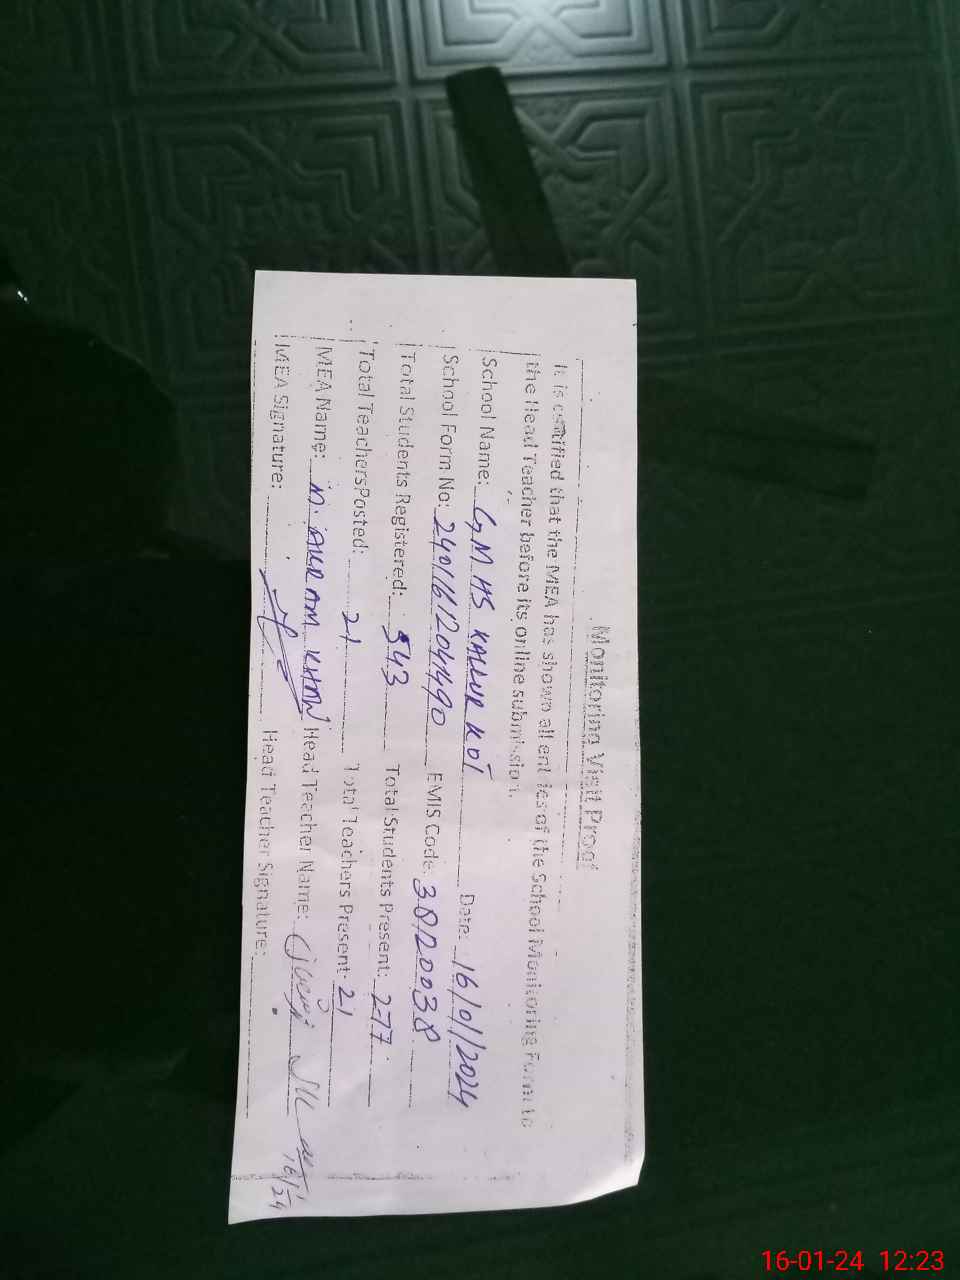 Monitoring Visit Proof
It is certified that the MEA has shown all entries of the School Monitoring Form to
the Head Teacher before its online submission.
School Name: GMHS KALLUR KOT Date: 16/01/2024
School Form No: EMIS Code: 38120038
Total Students Registered: 543 Total Students Present: 277
Total Teachers Posted: 21 Total Teachers Present: 21
MEA Name: M. AKRAM KHAN Head Teacher Name:
MEA Signature: Head Teacher Signature:
16-01-24 12:23